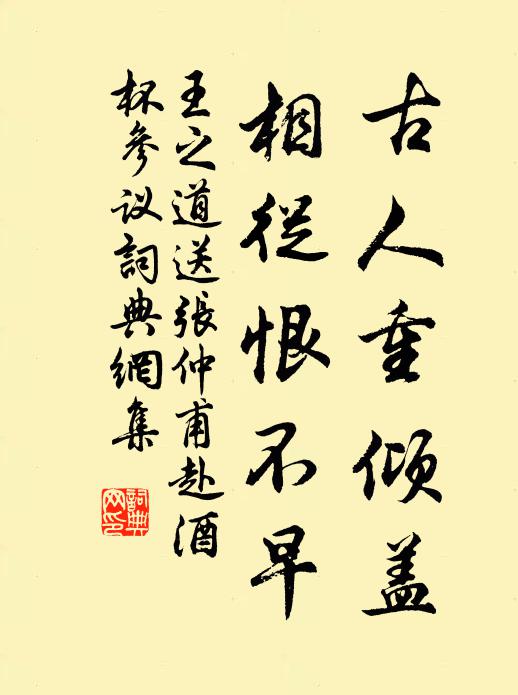 古人重倾盖
相從恨不早
王之道送張仲甫赴酒
杯參议詞典網集
詞典网印